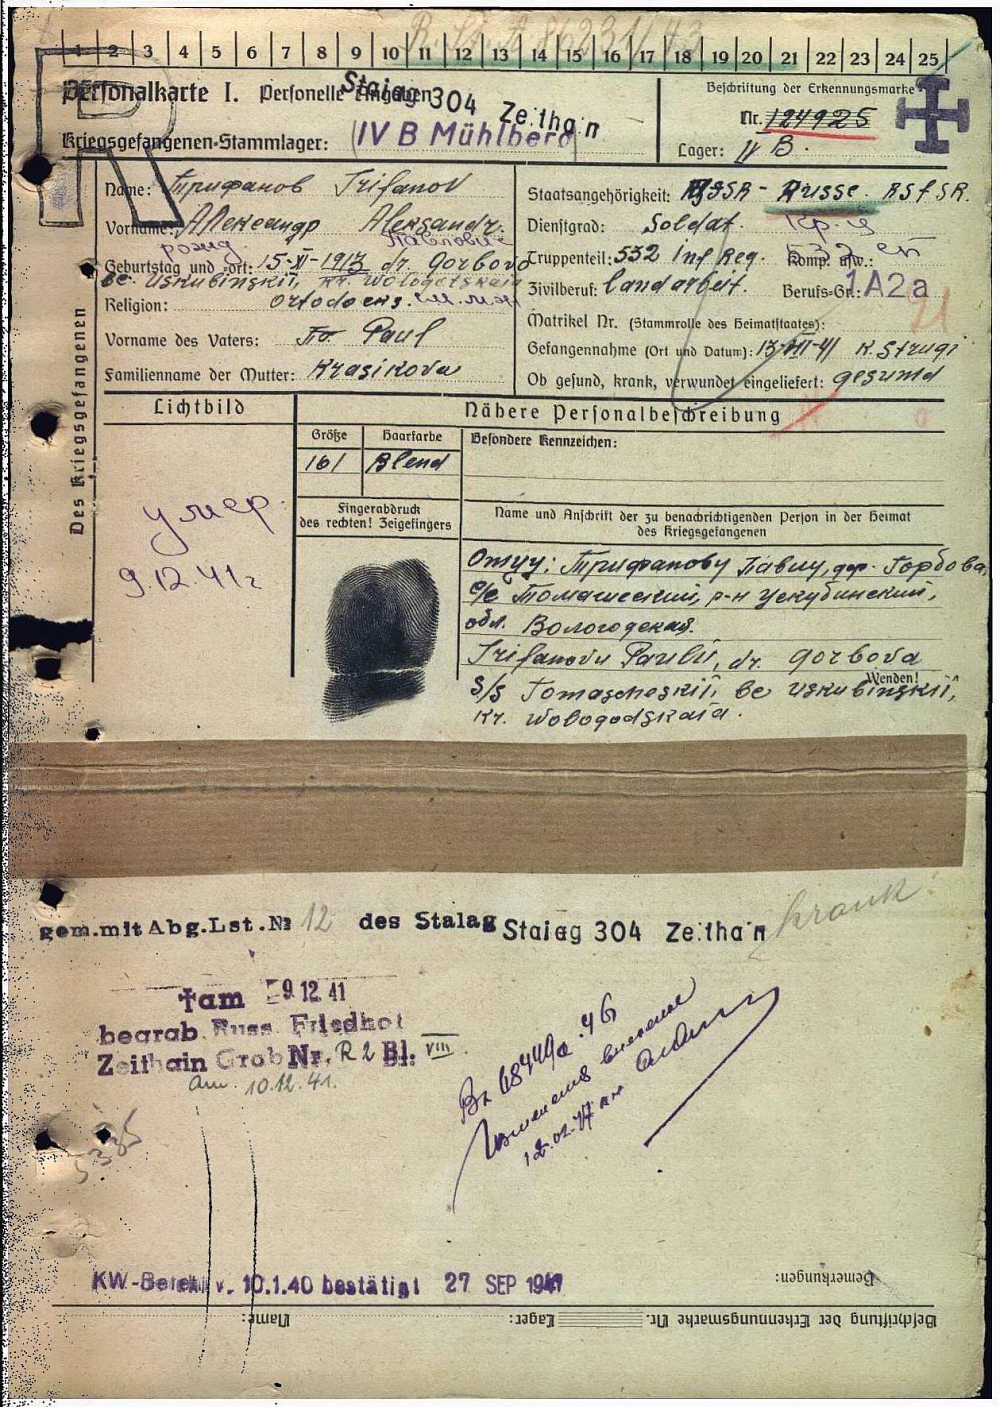 1 2 3 4 5 6 7 8 9 10 11 12 13 14 15 16 17 18 19 20 21 22 23 24 25
Personalkarte I. Personelle Angaben
Stalag 304 Zeithain
Kriegsgefangenen-Stammlager: IV B Mühlberg
Beschriftung der Erkennungsmarke
Nr. 124925
Lager: IV B.
Des Kriegsgefangenen
Name: Трифанов Trifanov
Vorname: Александр Alexandr.
Павлович
Geburtstag und -ort: 15-XI-1913 dr. Gorbovo
be Uskubinskii, kr. Wologotskaia
Religion: ortodoens.
Vorname des Vaters: Paul
Familienname der Mutter: Krasikova
Staatsangehörigkeit: Russe. RSFSR.
Dienstgrad: Soldat.
Truppenteil: 532 Inf Reg. Komp. usw.: 532 сп
Zivilberuf: landarbeit. Berufs-Gr.: 1A2a
Matrikel Nr. (Stammrolle des Heimatstaates):
Gefangennahme (Ort und Datum): 13-VII-41 K. Strugi
Ob gesund, krank, verwundet eingeliefert: gesund
Lichtbild
умер
9.12.41г
Nähere Personalbeschreibung
Größe Haarfarbe Besondere Kennzeichen:
161 Blend
Fingerabdruck
des rechten! Zeigefingers
Name und Anschrift der zu benachrichtigenden Person in der Heimat
des Kriegsgefangenen
Отцу: Трифанову Павлу, дер. Горбова,
с/с Томашеский, р-н Ускубинский,
обл. Вологодская.
Trifanovu Paulu, dr. Gorbova
Wenden!
s/s Tomascheskii, be Uskubinskii,
kr. Wologodskaia.
gem. mit Abg. Lst. № 12 des Stalag Stalag 304 Zeithain
krank
†am 9.12.41
begrab. Russ. Friedhof
Zeithain Grab Nr. R 2 Bl. VIII
am. 10.12.41.
12.02.47
KW-Befehl v. 10.1.40 bestätigt 27 SEP 1941
Bemerkungen:
Beschriftung der Erkennungsmarke Nr. Lager: Name: